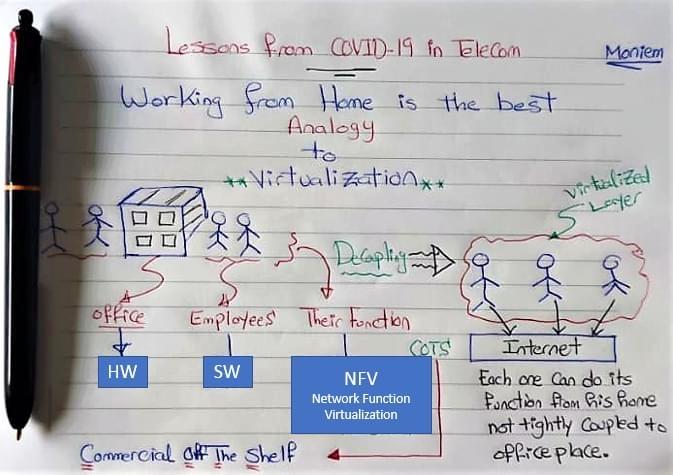 Lessons from COVID-19 in TeleCom
Moniem
Working from Home is the best
Analogy
to
**Virtualization**
Virtualized
Layer
Decapling
office
Employees
Their Function
HW
SW
NFV
Network Function
Virtualization
COTS
Internet
Each one can do its
function from his home
not tightly coupled to
office place.
Commercial off The Shelf